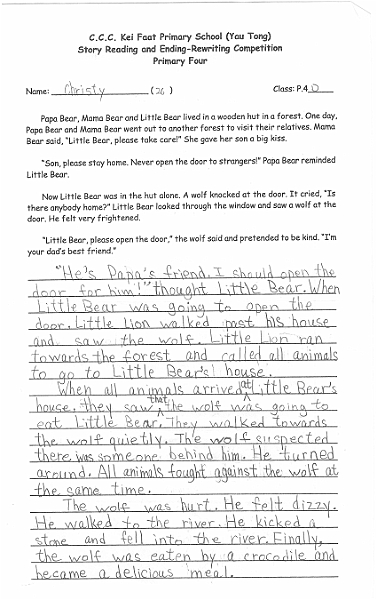 C.C.C. Kei Faat Primary School (Yau Tong)
Story Reading and Ending-Rewriting Competition
Primary Four
Name: Christy (26) Class: P.4 D
Papa Bear, Mama Bear and Little Bear lived in a wooden hut in a forest. One day,
Papa Bear and Mama Bear went out to another forest to visit their relatives. Mama
Bear said, "Little Bear, please take care!" She gave her son a big kiss.
"Son, please stay home. Never open the door to strangers!" Papa Bear reminded
Little Bear.
Now Little Bear was in the hut alone. A wolf knocked at the door. It cried, "Is
there anybody home?" Little Bear looked through the window and saw a wolf at the
door. He felt very frightened.
"Little Bear, please open the door," the wolf said and pretended to be kind. "I'm
your dad's best friend."
"He's Papa's friend. I should open the
door for him!" thought Little Bear. When
Little Bear was going to open the
door, Little Lion walked past his house
and saw the wolf. Little Lion ran
towards the forest and called all animals
to go to Little Bear's house.
When all animals arrived at Little Bear's
house, they saw that the wolf was going to
eat Little Bear. They walked towards
the wolf quietly. The wolf suspected
there was someone behind him. He turned
around. All animals fought against the wolf at
the same time.
The wolf was hurt. He felt dizzy.
He walked to the river. He kicked a
stone and fell into the river. Finally,
the wolf was eaten by a crocodile and
became a delicious meal.